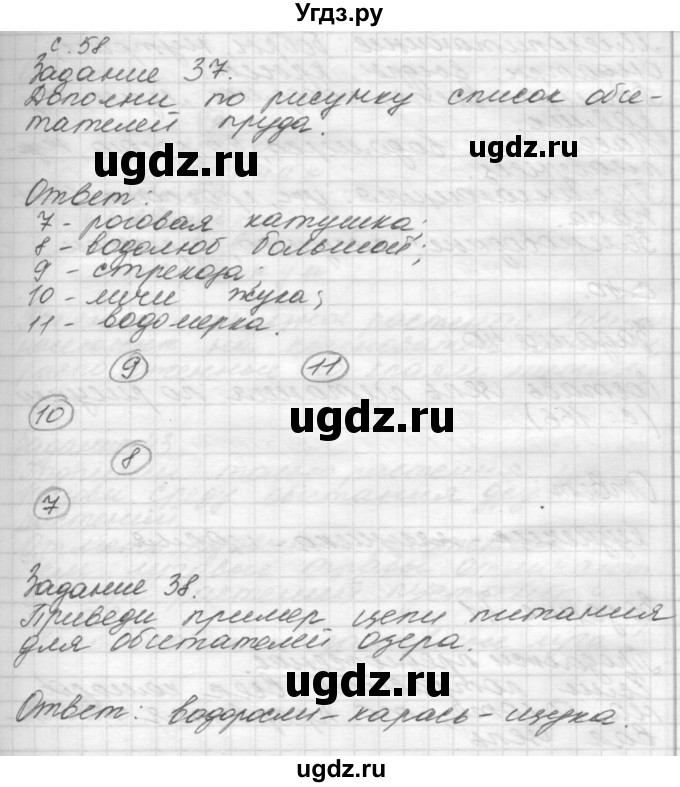 Угдз.ру
с. 58
Задание 37.
Дополни по рисунку список оби-
тателей пруда.
ugdz.ru
ugdz.ru
Ответ:
7 - роговая катушка;
8 - водолюб большой;
9 - стрекоза;
10 - личи жука;
11 - водомерка.
9 11
10
ugdz.ru
8
7
Задание 38.
Приведи пример цепи питания
для обитателей озера.
ugdz.ru
Ответ: водоросли - карась - щука.
ugdz.ru